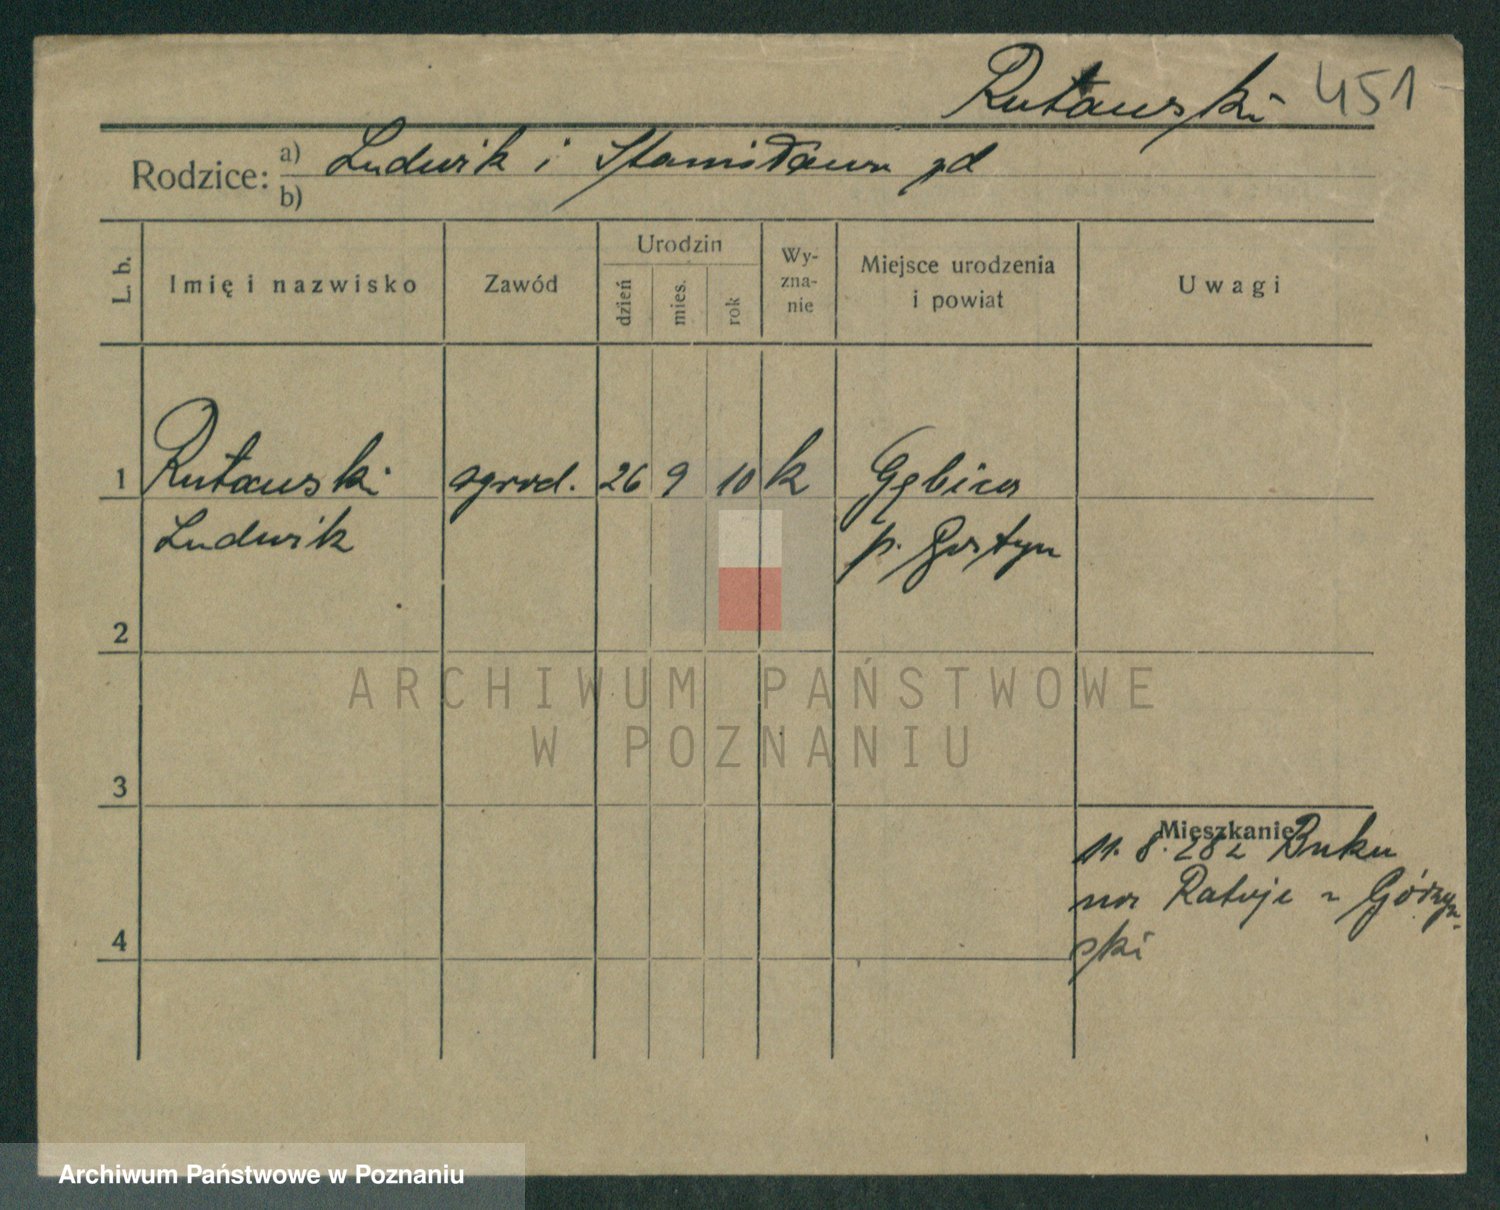 Rutawski 451
Rodzice: a) Ludwik i Stanisława zd
b)
L. b.
Imię i nazwisko
Zawód
Urodzin
dzień
mies.
rok
Wy-
zna-
nie
Miejsce urodzenia
i powiat
Uwagi
1 Rutawski ogrod. 26 9 10 k Gębice
Ludwik p. Gostyn
2
ARCHIWUM PAŃSTWOWE
W POZNANIU
3
Mieszkanie
11. 8. Buku
na Rataje Górzyń-
ski
4
Archiwum Państwowe w Poznaniu